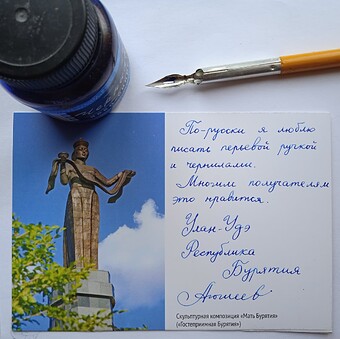 По-русски я люблю
писать перьевой ручкой
и чернилами.
Многим получателям
это нравится.
Улан-Удэ
Республика
Бурятия
Скульптурная композиция «Мать Бурятия»
(«Гостеприимная Бурятия»)